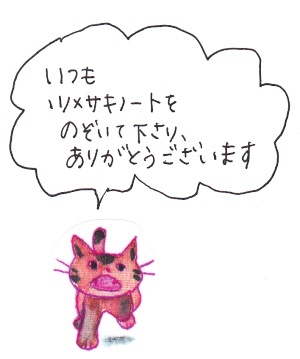 いつも
ツメサキノートを
のぞいて下さり、
ありがとうございます